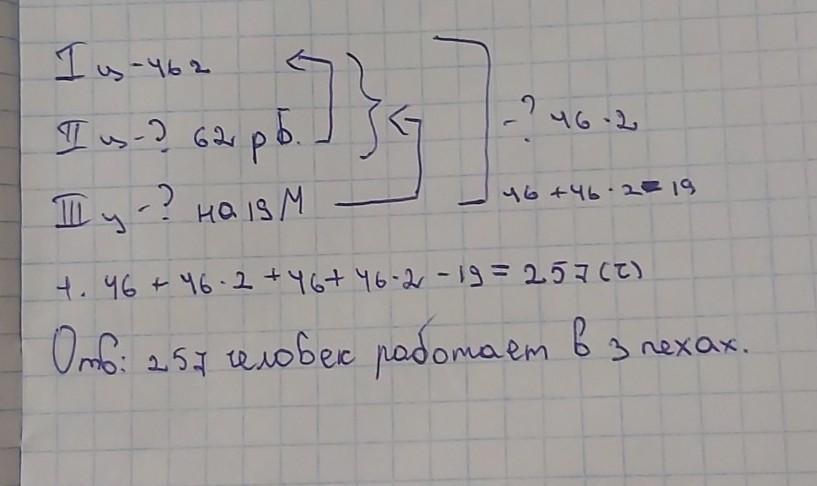 I ц - 46 г
II ц - ? в 2 рб.
III ц - ? на 19 М
- ? 46 · 2
46 + 46 · 2 - 19
1. 46 + 46 · 2 + 46 + 46 · 2 - 19 = 257 (г)
Отв: 257 человек работает в 3 цехах.